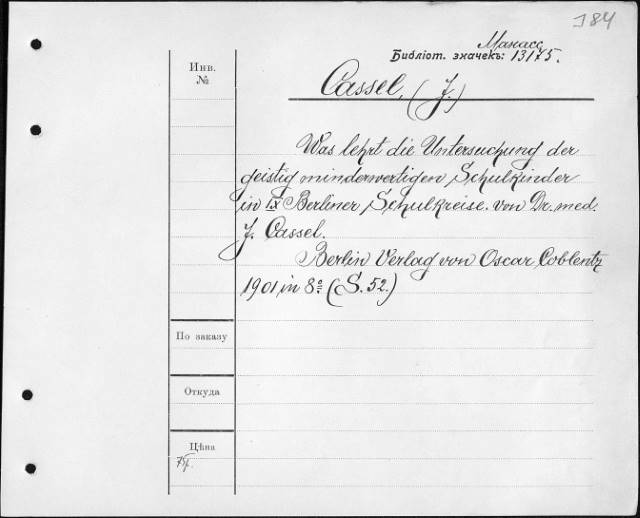 184
Манасс
Библіот. значекъ: 13175.
Инв.
№
Cassel, (J.)
Was lehrt die Untersuchung der
geistig minderwertigen Schulkinder
in IX Berliner Schulkreise. von Dr. med.
J. Cassel.
Berlin Verlag von Oscar Coblentz
1901, in 8º (S. 52.)
По заказу
Откуда
Цѣна